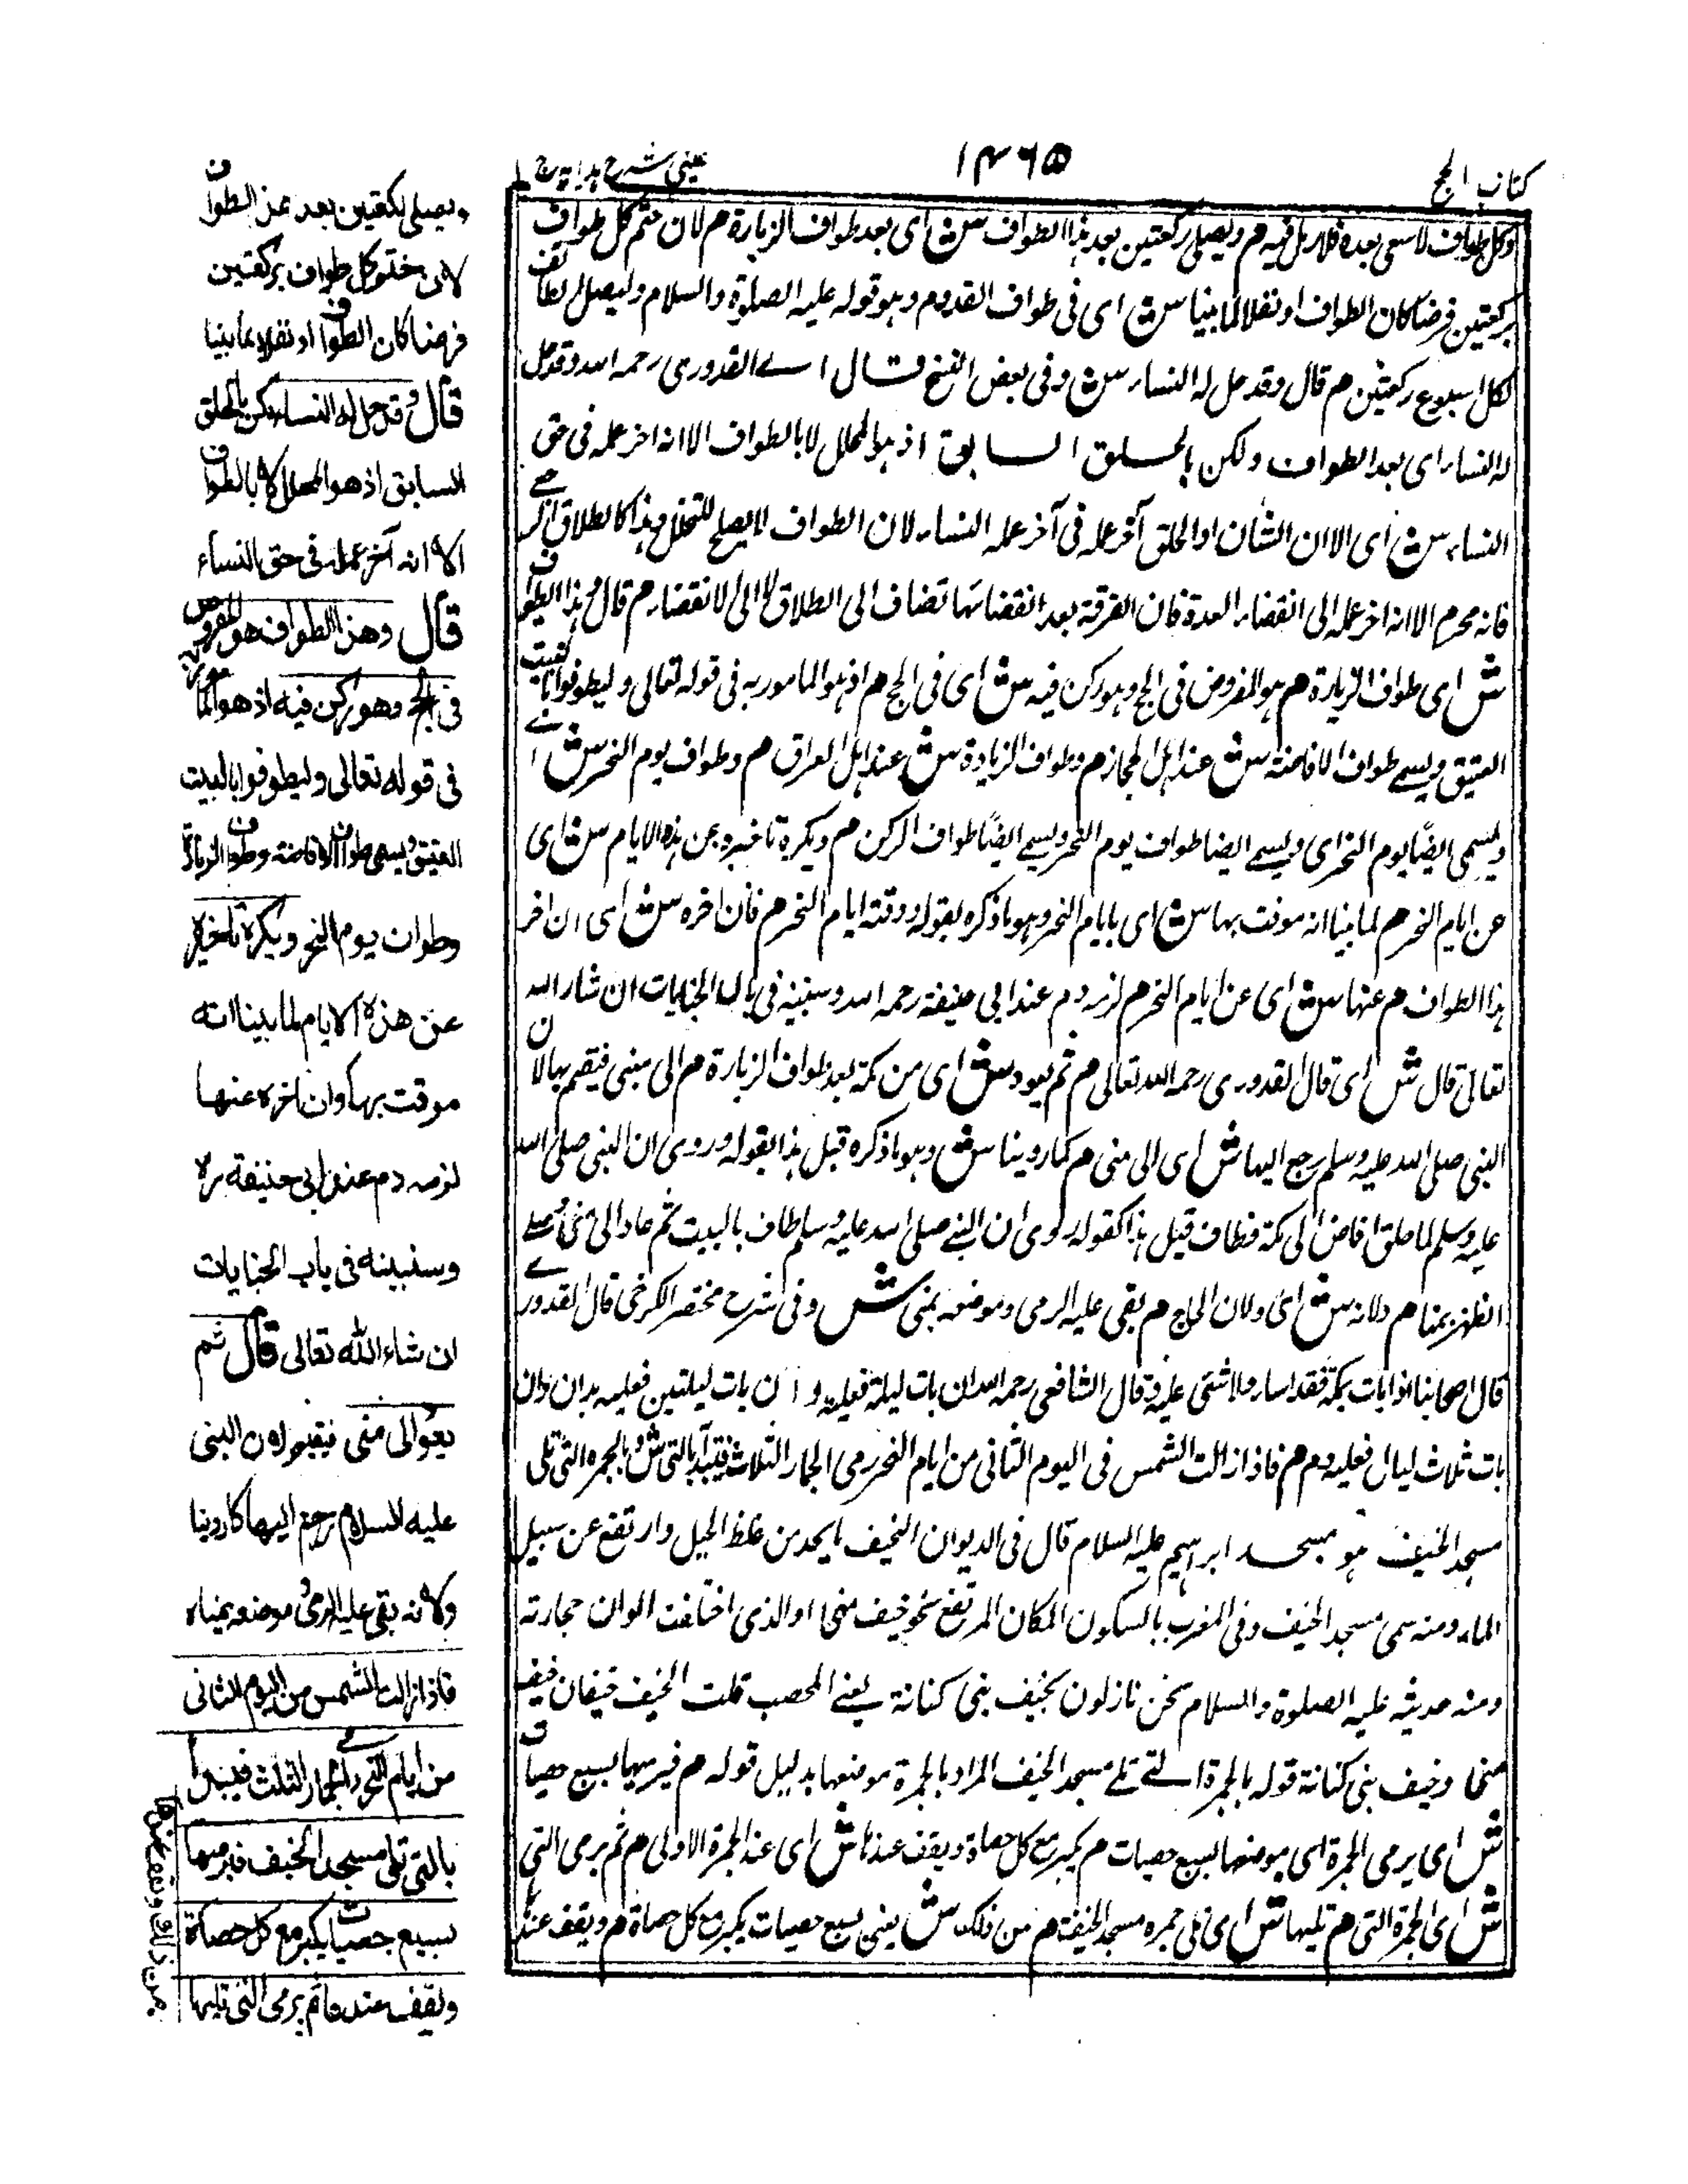 كتاب الحج
١٤٦٥
عینی شرح ہدایہ ج ١
وكل طواف لا سعى بعده فلا رمل فيه م ويصلي ركعتين بعد هذا الطواف ش اى بعد طواف الزيارة م لان ختم كل طواف
بركعتين فرضا كان الطواف او نفلا لما بينا ش اى فى طواف القدوم وهو قوله عليه الصلوة والسلام وليصل الطائف
لكل اسبوع ركعتين م قال وقد حل له النساء ش وفى بعض النسخ قال اے القدورى رحمه الله وقد حل
له النساء اى بعد الطواف ولكن بالحلق السابق اذ هو المحلل لا بالطواف الا انه اخر عمله فى حق
النساء ش اى الا ان الشان او الحلق آخر عمله فى آخر عمله النساء لان الطواف لا يصلح للتحلل وهذا كالطلاق الرجعے
فانه محرم الا انه اخر عمله الى انقضاء العدة فان الفرقة بعد انقضائها تضاف الى الطلاق لا الى الانقضاء م قال وهذا الطواف
ش اى طواف الزيارة م هو المفروض فى الحج وهو ركن فيه ش اى فى الحج م اذ هو المامور به فى قوله تعالى وليطوفوا بالبيت
العتيق ويسمے طواف الافاضة ش عند اهل الحجاز م وطواف الزيارة ش عند اهل العراق م وطواف يوم النحر ش اے
ويسمى ايضًا يوم النحر اى ويسمے ايضا طواف يوم النحر ويسمے ايضًا طواف الركن م ويكره تاخيره عن هذه الايام ش اى
عن ايام النحر م لما بينا انه موقت بها ش اى بايام النحر وهو ما ذكره بقوله ووقته ايام النحر م فان اخره ش اى ان اخر
هذا الطواف م عنها ش اى عن ايام النحر م لزمه دم عند ابى حنيفة رحمه الله وسنبينه فى باب الجنايات ان شاء الله
تعالى قال ش اى قال القدورى رحمه الله تعالى م ثم يعود ش اى من مكة بعد طواف الزيارة م الى منى فيقيم بها لان
النبى صلى الله عليه وسلم رجع اليها ش اى الى منى م كما روينا ش وهو ما ذكره قبل هذا بقوله وروى ان النبى صلى الله
عليه وسلم لما حلق افاض الى مكة فطاف قيل هذا كقوله روى ان النبے صلى الله عليه وسلم طاف بالبيت ثم عاد الى منى وصلے
الظهر بمنا م ولانه ش اى ولان الحاج م بقى عليه الرمى وموضعه بمنى ش وفى شرح مختصر الكرخى قال القدورے
قال اصحابنا اذا بات بمكة فقد اساء ولا شئ عليه وقال الشافعى رحمه الله ان بات ليلة فعليه و ان بات ليلتين فعليه بدان وان
بات ثلاث ليال فعليه دم م فاذا زالت الشمس فى اليوم الثانى من ايام النحر رمى الجمار الثلاث فيبتدأ بالتى ش و بالجمره التى تلى
مسجد الخيف هو مسجد ابراهيم عليه السلام قال فى الديوان الخيف ما يحد من غلظ الجبل وارتفع عن سبيل
الماء ومنه سمى مسجد الخيف وفى المغرب بالسكون المكان المرتفع نحو خيف منى او الذى اختلفت الوان حجارته
ومنه حديثه عليه الصلوة والسلام نحن نازلون بخيف بنى كنانة يعنے المحصب قلت الخيف خيفان خيف
منى وخيف بنى كنانة قوله بالجمرة التے تلے مسجد الخيف المراد بالجمرة موضعها بدليل قوله م فيرميها بسبع حصيات
ش اى يرمى الجمرة اى موضعها بسبع حصيات م يكبر مع كل حصاة ويقف عندها ش اى عند الجمرة الاولى م ثم يرمى التى
ش اى الجمرة التى م تليها ش اى تلى جمره مسجد الخيف م من ذلك ش يعنى بسبع حصيات يكبر مع كل حصاة م ويقف عندها
ويصلى ركعتين بعد هذا الطواف
لان ختم كل طواف بركعتين
فرضا كان الطواف او نفلا لما بينا
قال وقد حل له النساء لكن بالحلق
السابق اذ هو المحلل لا بالطواف
الا انه آخر عمله فى حق النساء
قال وهذا الطواف هو المفروض
فى الحج وهو ركن فيه اذ هو المامور به
فى قوله تعالى وليطوفوا بالبيت
العتيق ويسمى طواف الافاضة وطواف الزيارة
وطواف يوم النحر ويكره تاخيره
عن هذه الايام لما بينا انه
موقت بها وان اخره عنها
لزمه دم عند ابى حنيفة رح
وسنبينه فى باب الجنايات
ان شاء الله تعالى قال ثم
يعود الى منى فيقيم لان النبى
عليه السلام رجع اليها كما روينا
ولانه بقى عليه الرمى وموضعه بمناه
فاذا زالت الشمس من اليوم الثانى
من ايام النحر رمى الجمار الثلث فيبتدأ
بالتى تلى مسجد الخيف فيرميها
بسبع حصيات يكبر مع كل حصاة
ويقف عندها ثم يرمى التى تليها